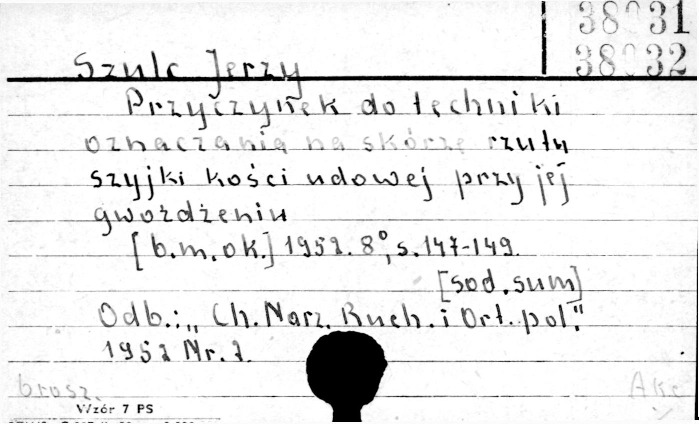 38031
38032
Szulc Jerzy
Przyczynek do techniki
oznaczania na skórze rzutu
szyjki kości udowej przy jej
gwożdżeniu
[b.m.ok.] 1952. 8°, s. 147-149.
[sod. sum]
Odb.: „Ch. Narz. Ruch. i Ort. pol."
1952 Nr. 2.
brosz. Akc
Wzór 7 PS